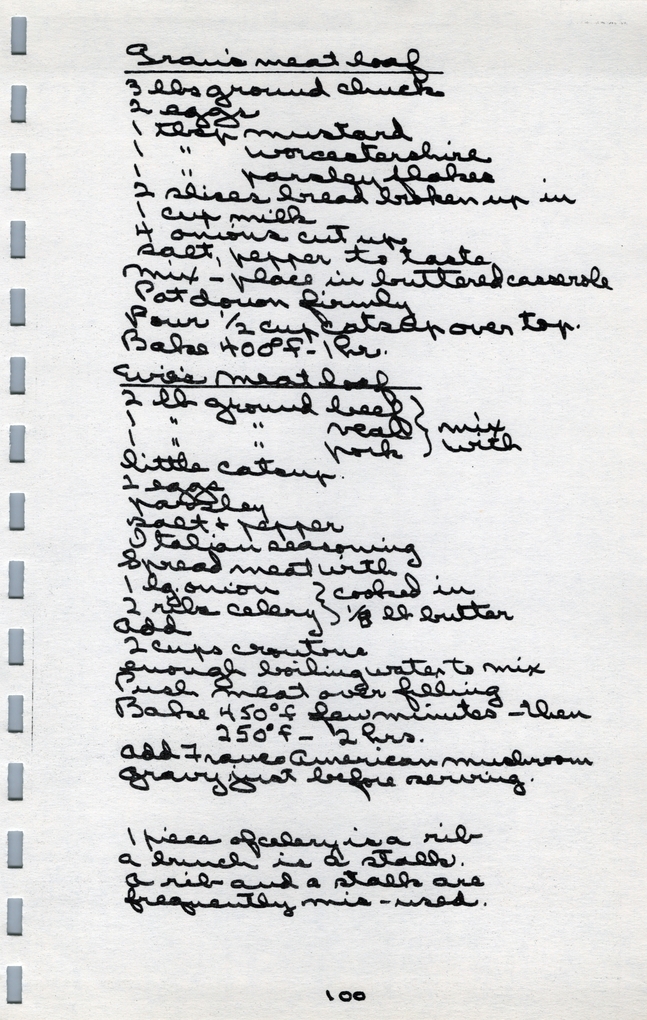 Gran's meat loaf
3 lbs ground chuck
2 eggs
1 tbsp mustard
1 " worcestershire
1 " parsley flakes
2 slices bread broken up in
1 cup milk
4 onions cut up
salt, pepper to taste
mix - place in buttered casserole
Pat down firmly
Pour 1/2 cup catsup over top.
Bake 400°f - 1 hr.
Evie's meat loaf
2 lb ground beef } mix
1 " " veal } with
1 " " pork }
little catsup.
2 eggs
parsley
salt + pepper
Italian seasoning
Spread meat with
1 lg onion } cooked in
2 ribs celery } 1/8 lb butter
add
2 cups croutons
enough boiling water to mix
Push meat over filling
Bake 450°f few minutes - then
250°f - 2 hrs.
add Franco American mushroom
gravy just before serving.
1 piece of celery is a rib
a bunch is a stalk.
a rib and a stalk are
frequently mis-used.
100